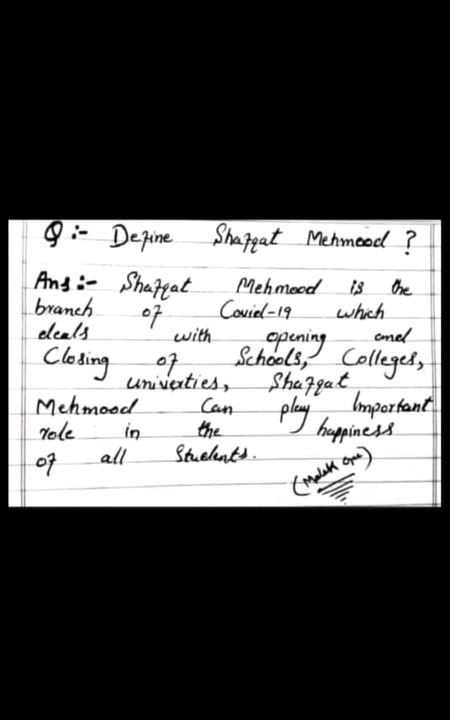 Q :- Define Shafqat Mehmood ?
Ans :- Shafqat Mehmood is the
branch of Covid-19 which
deals with opening and
Closing of Schools, Colleges,
univerties, Shafqat
Mehmood Can play Important
role in the happiness
of all Students.
(Malak